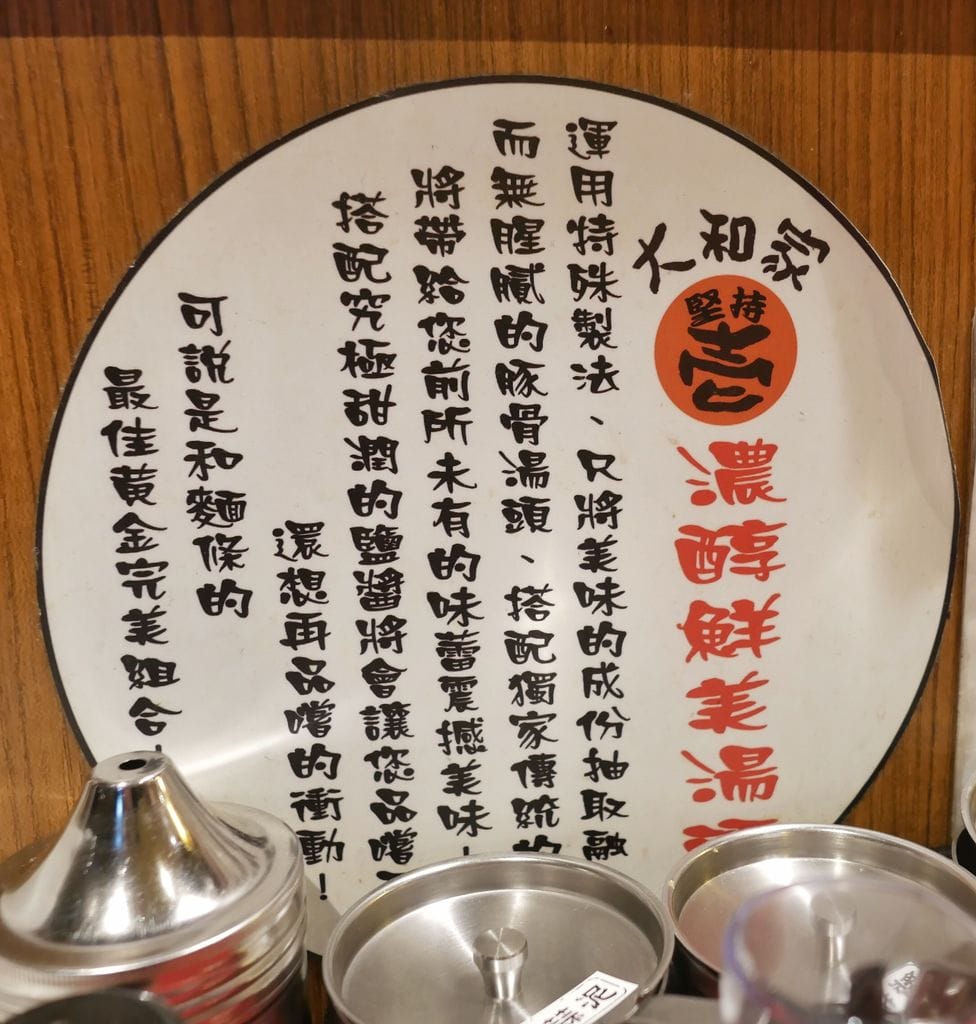 大和家
堅持
壱
濃醇鮮美湯
運用特殊製法、只將美味的成份抽取融
而無腥膩的豚骨湯頭、搭配獨家傳統的
將帶給您前所未有的味蕾震撼美味！
搭配究極甜潤的鹽醬將會讓您品嚐
還想再品嚐的衝動！
可說是和麵條的
最佳黃金完美組合！